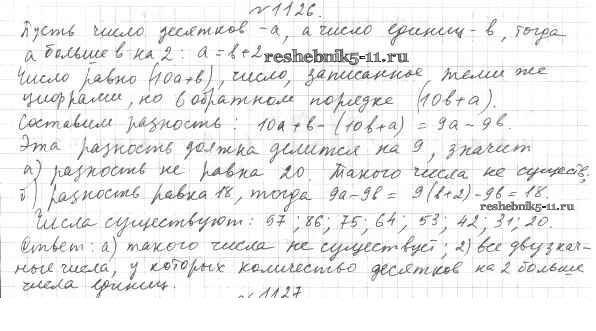 №1126.
Пусть число десятков -а, а число единиц - в, тогда
а больше в на 2: а = в+2
reshebnik5-11.ru
Число равно (10а+в), число, записанное теми же
цифрами, но в обратном порядке (10в+а).
Составим разность: 10а+в-(10в+а) = 9а-9в.
Эта разность должна делится на 9, значит
а) разность не равна 20. Такого числа не существ.
б) разность равна 18, тогда 9а-9в = 9(в+2)-9в = 18.
reshebnik5-11.ru
Числа существуют: 97; 86; 75; 64; 53; 42; 31; 20.
Ответ: а) такого числа не существует; 2) все двузнач-
ные числа, у которых количество десятков на 2 больше
числа единиц.
№1127